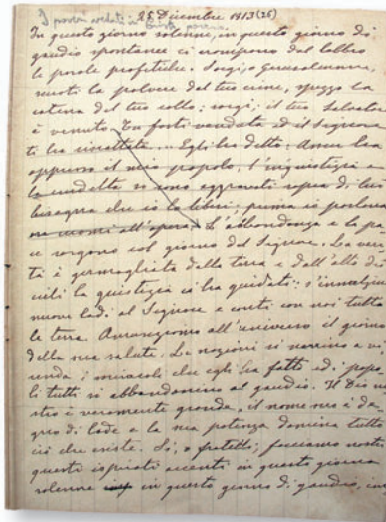 25 Dicembre 1913 (26)
In questo giorno solenne, in questo giorno di
gaudio spontanee ci erompono dal labbro
le parole profetiche. Sorgi, o Gerusalemme,
scuoti la polvere dal tuo crine, spezza la
catena del tuo collo; sorgi, il tuo Salvatore
è venuto. Tu fosti venduta ed il Signore
ti ha riscattata. Egli ha detto: Assur ha
oppresso il mio popolo, l'ingiustizia e
la vendetta si sono aggravati sopra di lui
bisogna che io lo liberi; prima io parlava
ora eccomi all'opera. L'abbondanza e la pa
ce sorgono col giorno del Signore. La veri
tà è germogliata dalla terra e dall'alto dei
cieli la giustizia ci ha guidati: s'innalzino
nuove lodi al Signore e canti con noi tutta
la terra. Annunziamo all'universo il giorno
della sua salute. Le nazioni si narrino a vi
cenda i miracoli che egli ha fatti ed i popo
li tutti si abbandonino al gaudio. Il Dio no
stro è veramente grande, il nome suo è de
gno di lode e la sua potenza domina tutto
ciò che esiste. Sì, o fratelli, facciamo nostri
questi ispirati accenti in questo giorno
solenne in questo giorno di gaudio, in